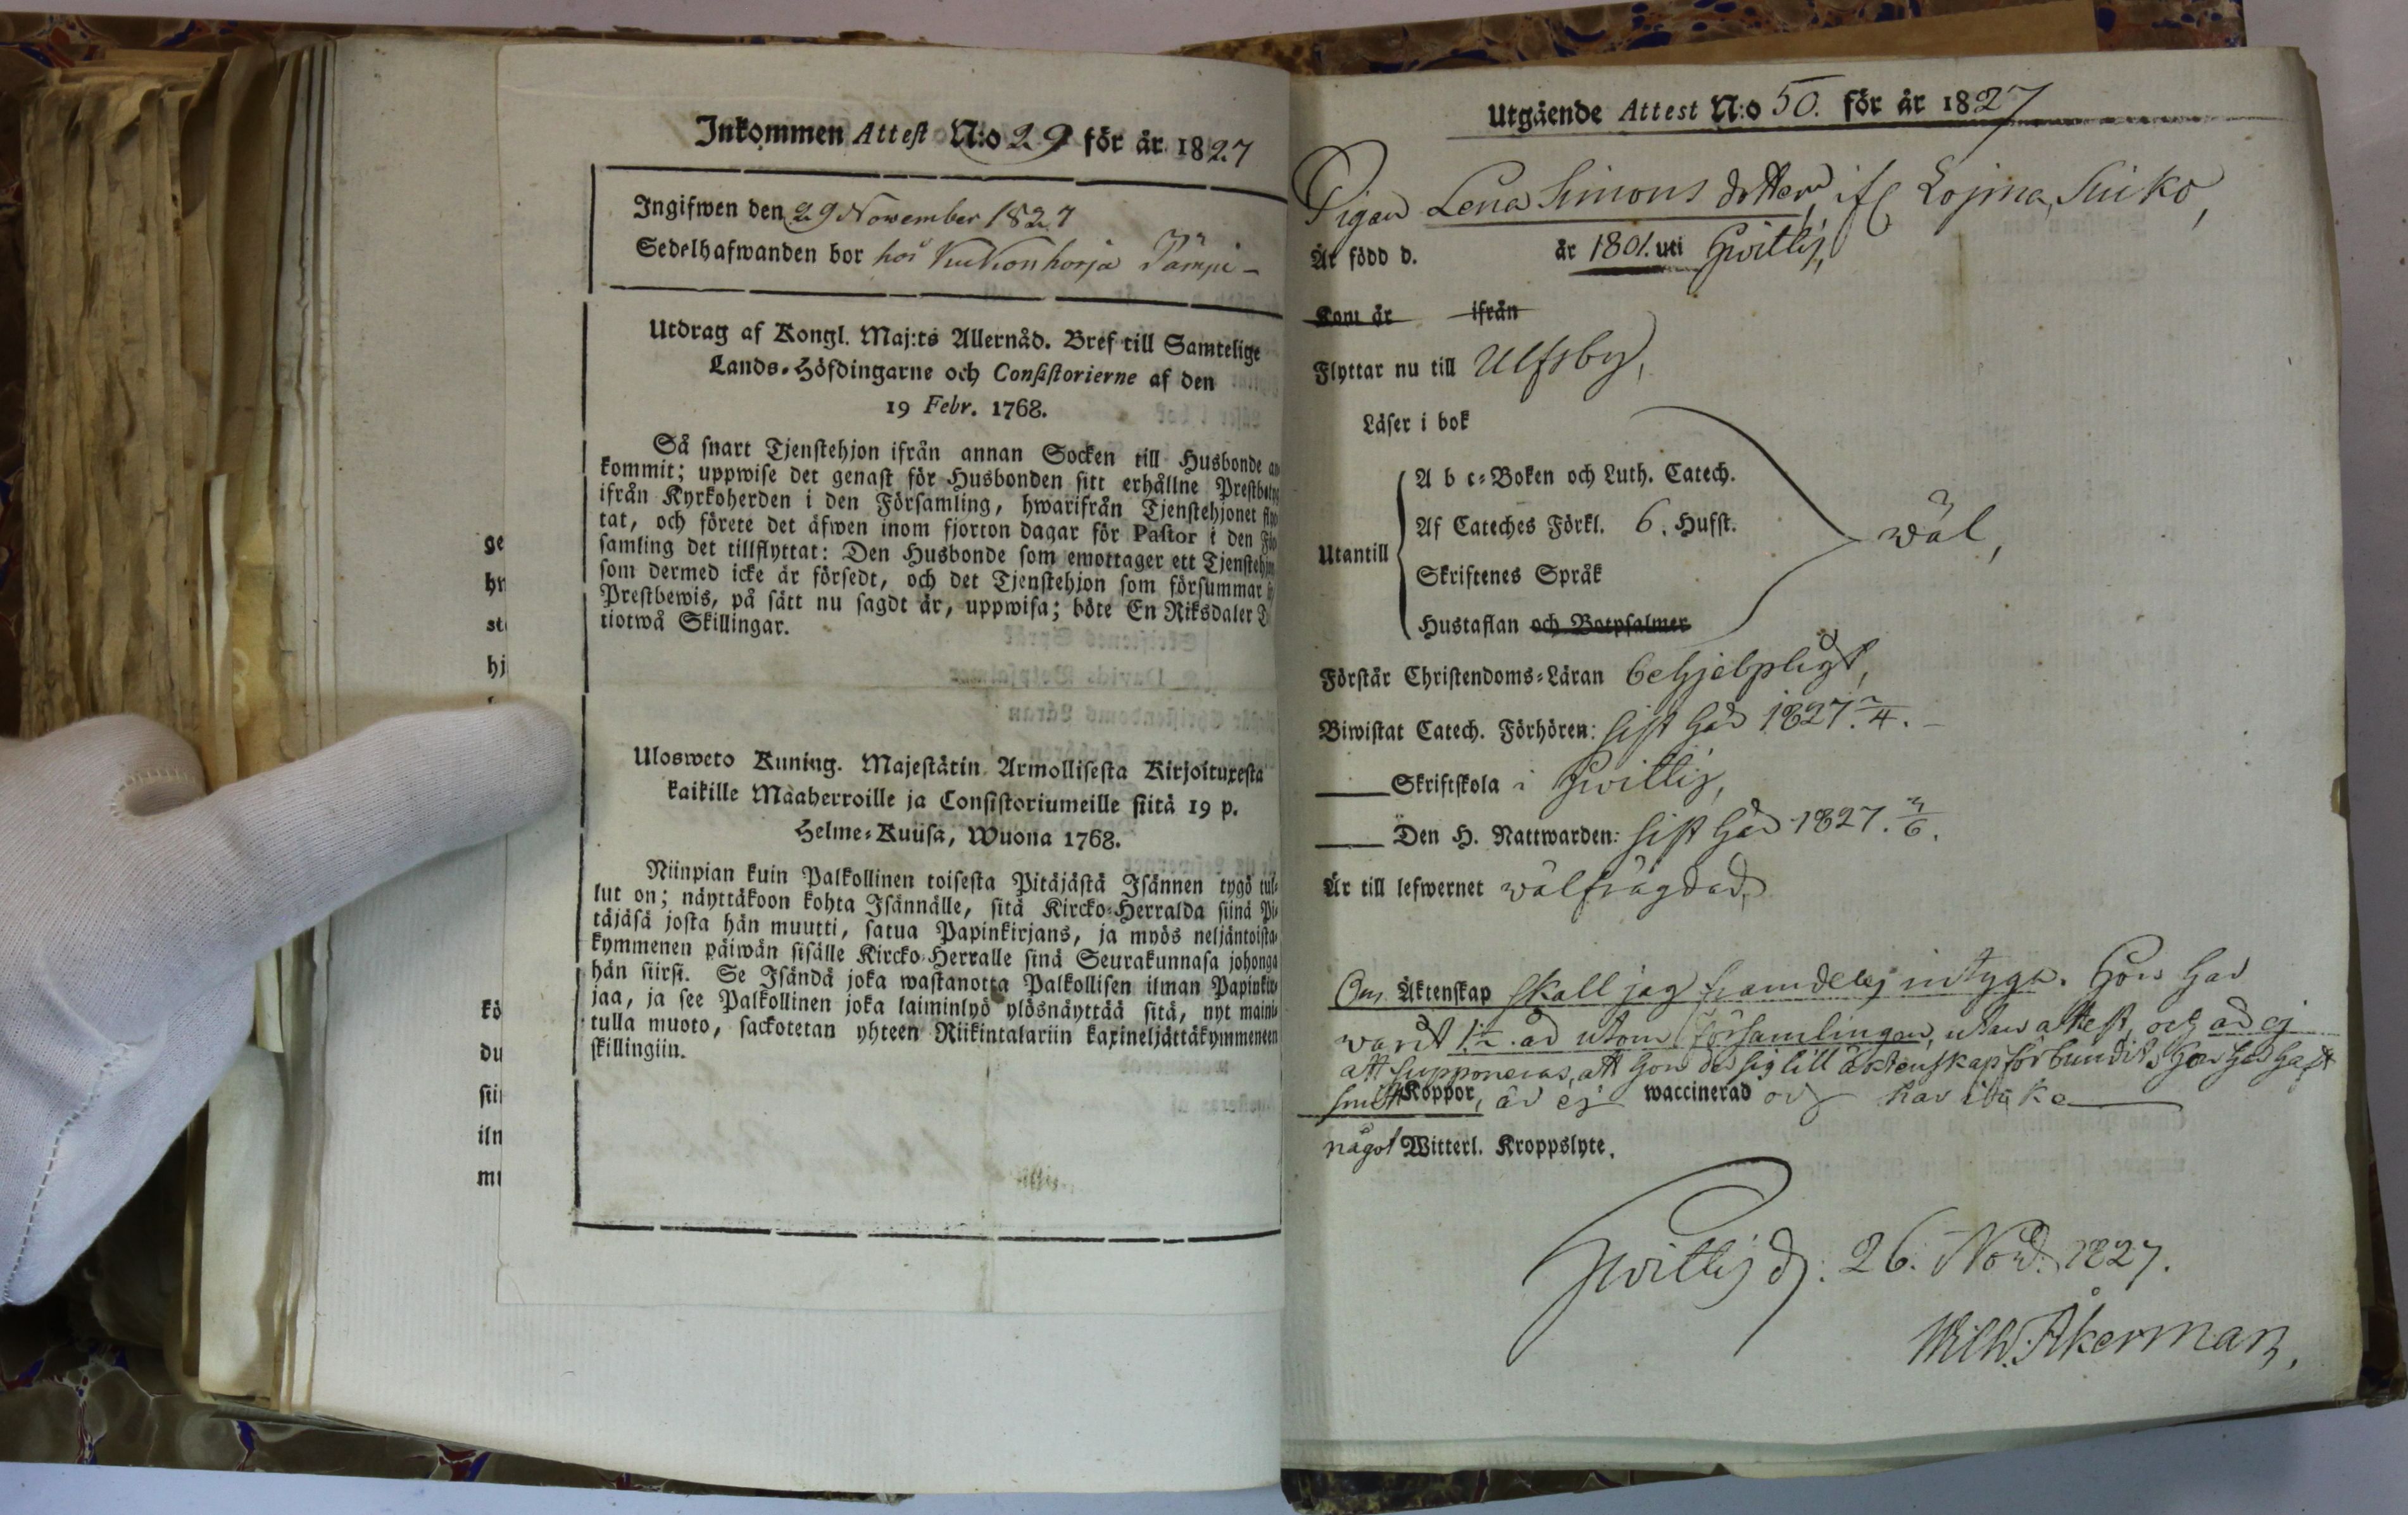 Inkommen Attest N:o 29 för år 1827
Ingifwen den 29 November 1827
Sedelhafwanden bor hos Kukonharja Pämpi-
Utdrag af Kongl. Maj:ts Allernåd. Bref till Samtelige
Lands-Höfdingarne och Consistorierne af den
19 Febr. 1768.
Så snart Tjenstehjon ifrån annan Socken till Husbonde
kommit; uppwise det genast för Husbonden sitt erhållne
ifrån Kyrkoherden i den Församling, hwarifrån Tjenstehjonet
tat, och förete det äfwen inom fjorton dagar för Pastor i den
samling det tillflyttat: Den Husbonde som emottager ett
som dermed icke är försedt, och det Tjenstehjon som försummar
Prestbewis, på sätt nu sagdt är, uppwisa; böte En Riksdaler
tiotwå Skillingar.
Ulosweto Kuning. Majestätin Armollisesta Kirjoituxesta
kaikille Maaherroille ja Consistoriumeille siitä 19 p.
Helme-Kuusa, Wuona 1768.
Niinpian kuin Palkollinen toisesta Pitäjästä Isännen tygö tul-
lut on; näyttäkoon kohta Isännälle, sitä Kircko-Herralda siinä Pi-
täjäsä josta hän muutti, satua Papinkirjans, ja myös neljäntoista-
kymmenen päiwän sisälle Kircko-Herralle sinä Seurakunnasa johonga
hän siirsi. Se Isändä joka wastanotta Palkollisen ilman Papinkir-
jaa, ja see Palkollinen joka laiminlyö ylösnäyttää sitä, nyt mainit-
tulla muoto, sackotetan yhteen Riikintalariin kaxineljättäkymmeneen
skillingiin.
ge
hn
st
hj
kö
du
sii
iln
mu
Utgående Attest N:o 50. för år 1827
Pigan Lena Simons dotter, ifr Lojma, Suiko,
Är född d. år 1801. uti Hwittis,
Kom år ifrån
Flyttar nu till Ulfsby,
Läser i bok
Utantill
A b c-Boken och Luth. Catech.
Af Cateches Förkl. 6. Hufst.
Skriftenes Språk
Hustaflan och Botpsalmer
wäl,
Förstår Christendoms-Läran behjelpligt,
Biwistat Catech. Förhören: sist här 1827. 2/4.
Skriftskola i Hwittis,
Den H. Nattwarden: sist här 1827. 3/6.
Är till lefwernet wälfrägdad,
Om Äktenskap skall jag framdeles intyga. Hon har
warit 1 1/2 år utom Församlingen, utan attest, och är ej
att supponeras, att hon der sig till äktenskap förbundit. Hon har haft
smitt Koppor, är ej waccinerad och har icke
något Witterl. Kroppslyte.
Hwittis d. 26. Nov. 1827.
Wilh. Åkerman,